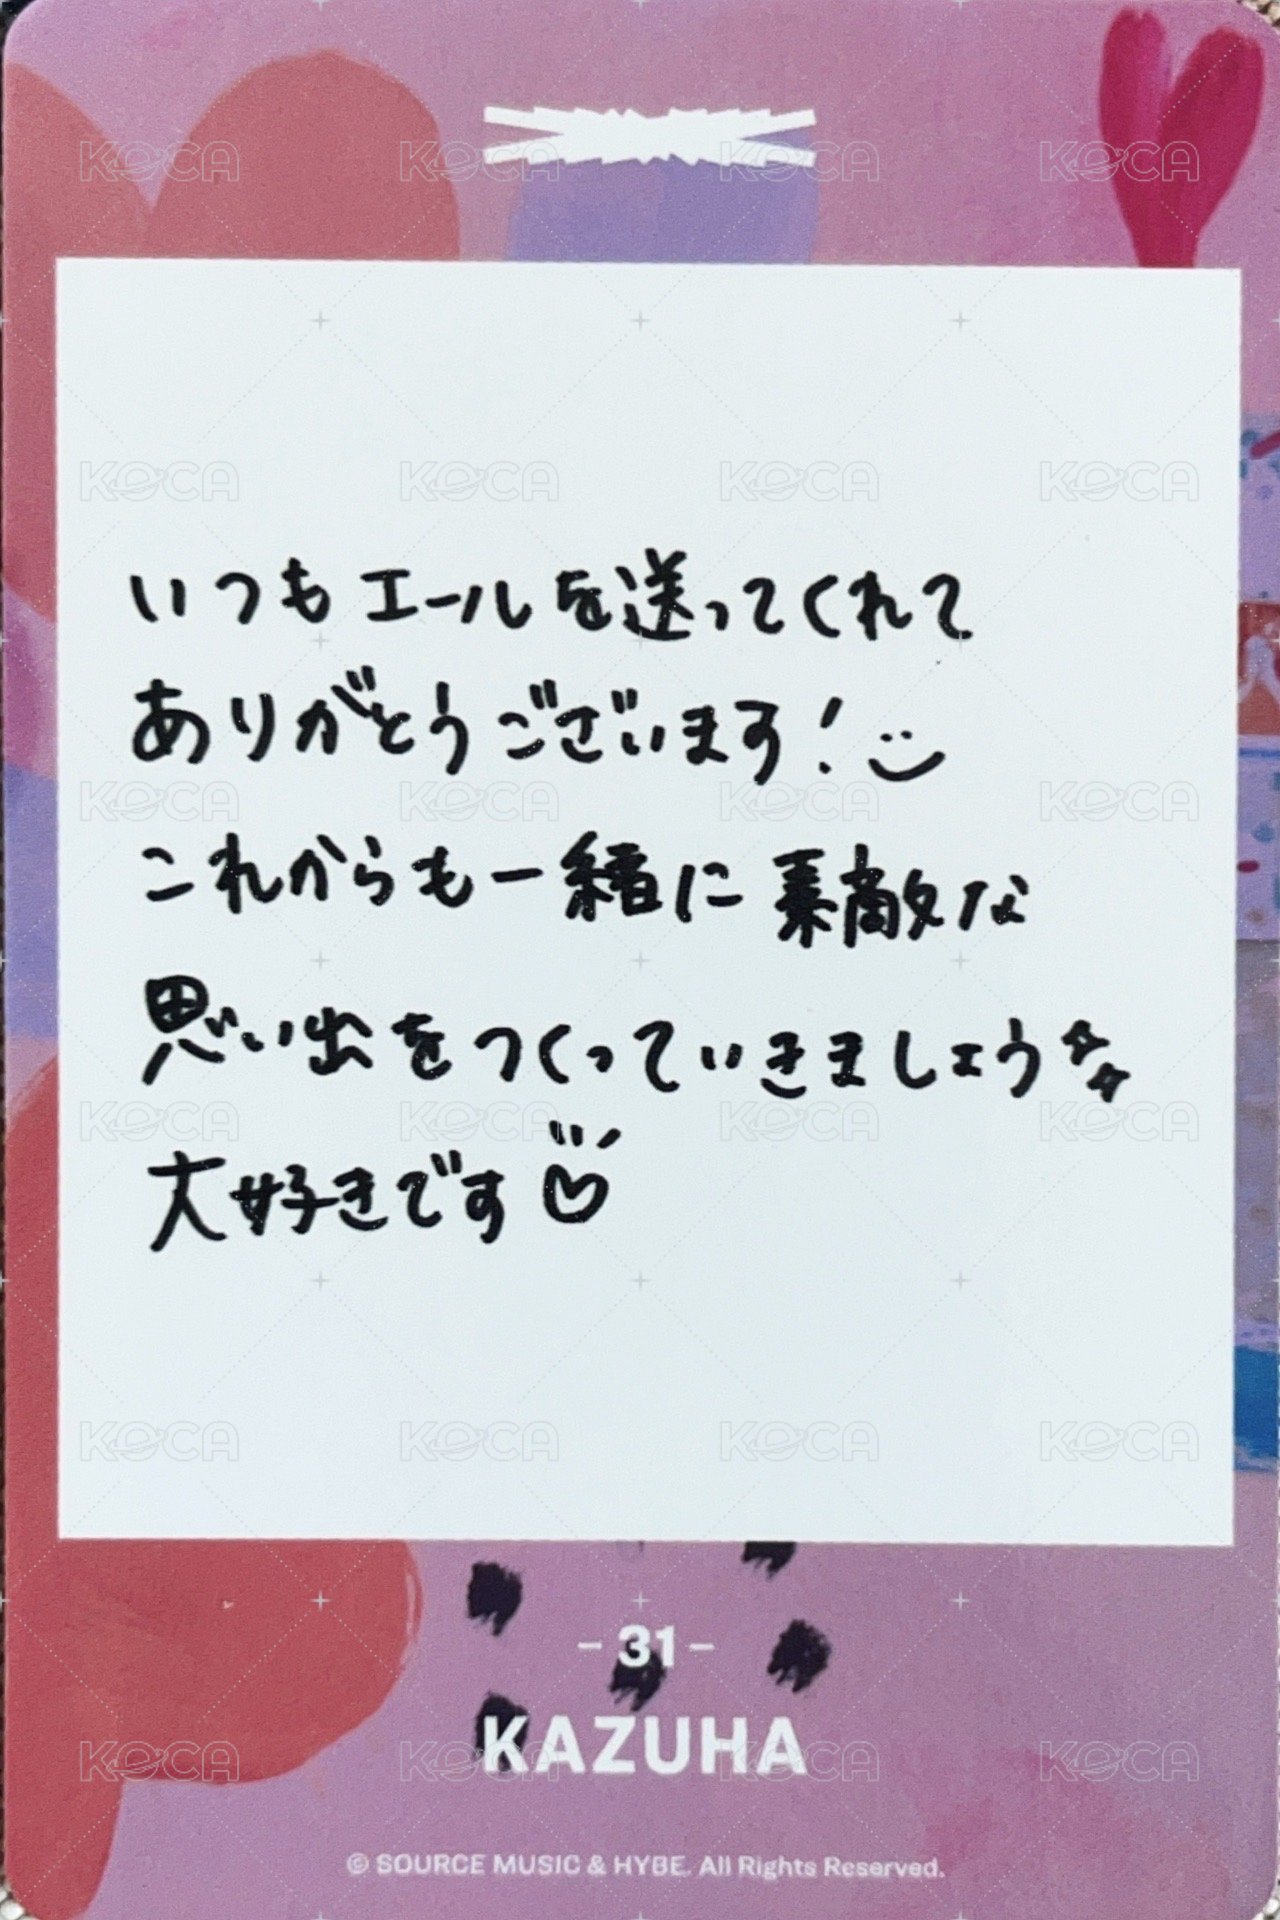 いつもエールを送ってくれて
ありがとうございます!
これからも一緒に素敵な
思い出をつくっていきましょう
大好きです♡
- 31 -
KAZUHA
© SOURCE MUSIC & HYBE. All Rights Reserved.
KOCA